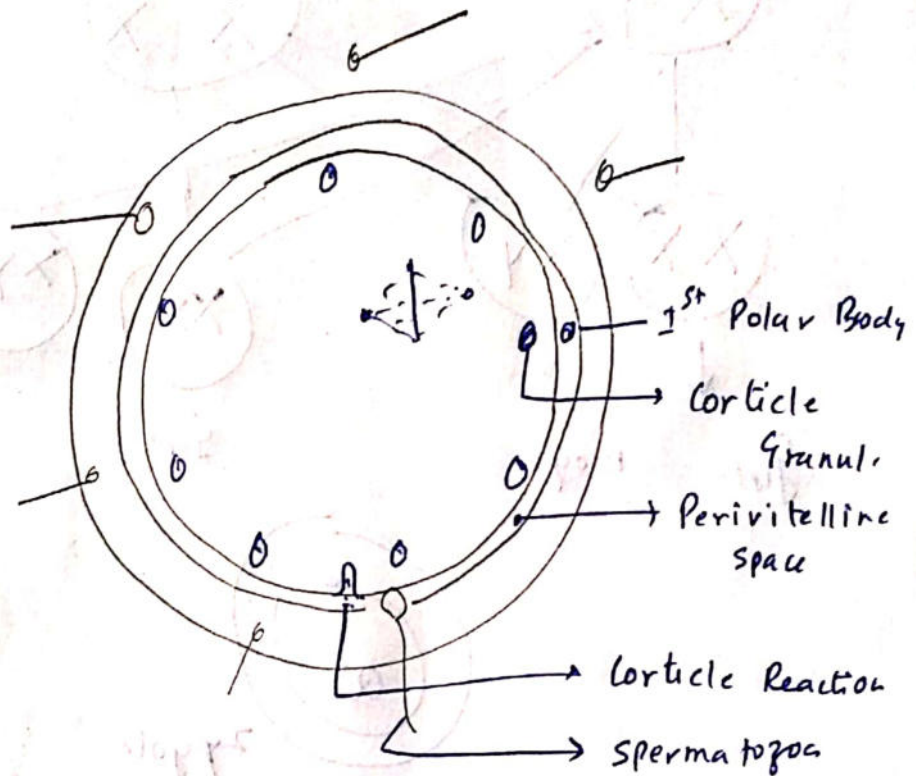 1st Polar Body
Corticle
Granul.
Perivitelline
space
Corticle Reaction
spermatozoa